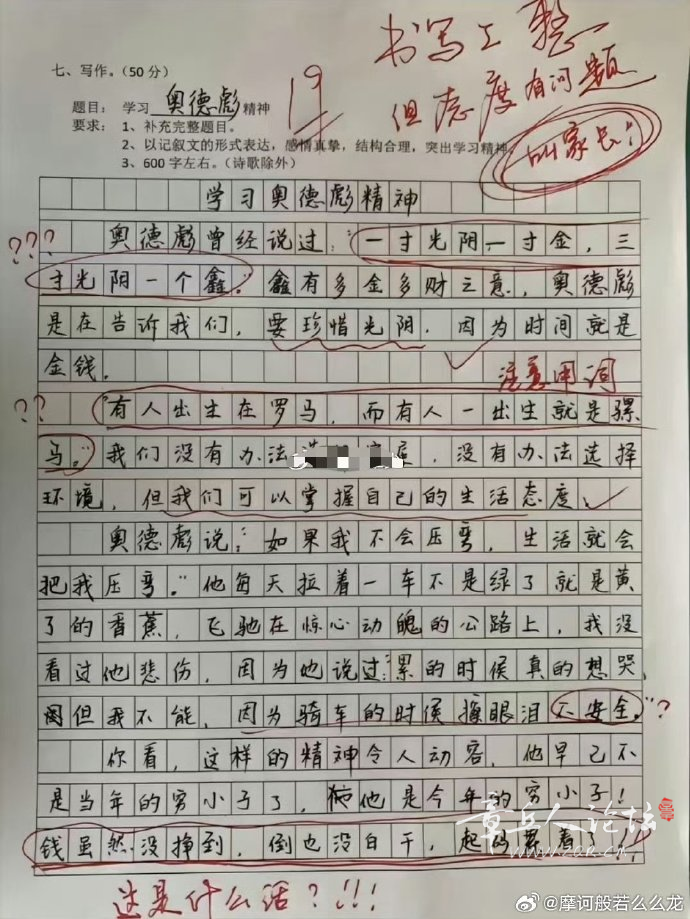 书写工整
但态度有问题
叫家长!
19
七、写作。(50分)
题目： 学习 奥德彪 精神
要求： 1、补充完整题目。
2、以记叙文的形式表达，感情真挚，结构合理，突出学习精神。
3、600字左右。(诗歌除外)
学习奥德彪精神
???
奥德彪曾经说过："一寸光阴一寸金，三
寸光阴一个鑫。"鑫有多金多财之意，奥德彪
是在告诉我们，要珍惜光阴，因为时间就是
金钱。
注意用词
??
"有人出生在罗马，而有人一出生就是骡
马。"我们没有办法，没有办法选择
环境，但我们可以掌握自己的生活态度。
奥德彪说："如果我不会压弯，生活就会
把我压弯。"他每天拉着一车不是绿了就是黄
了的香蕉，飞驰在惊心动魄的公路上，我没
看过他悲伤，因为他说过："累的时候真的想哭，
但我不能，因为骑车的时候擦眼泪不安全。"
?
你看，这样的精神令人动容，他早已不
是当年的穷小子了，他是今年的穷小子!
钱虽然没挣到，倒也没白干，起码累着了!
这是什么话?!!!
章丘人论坛
@摩诃般若么么龙